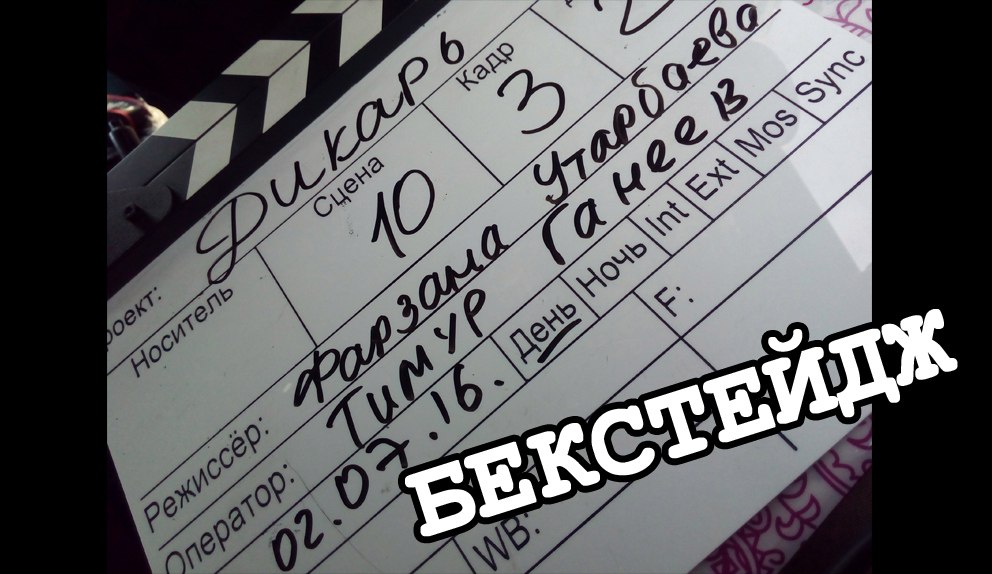 роект: Дикарь
Носитель Сцена Кадр
10 3 2
Режиссёр: Фарзана Утарбаева
Оператор: Тимур Ганеев
02.07.16. День Ночь Int Ext Mos Sync
F:
WB:
БЕКСТЕЙДЖ